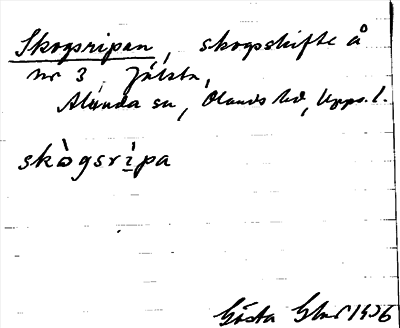 Skogsripan, skogsskifte å
nr 3 Jälsta,
Alunda sn, Olands hd, Upps. l.
skògsrìpa
Gösta 1936